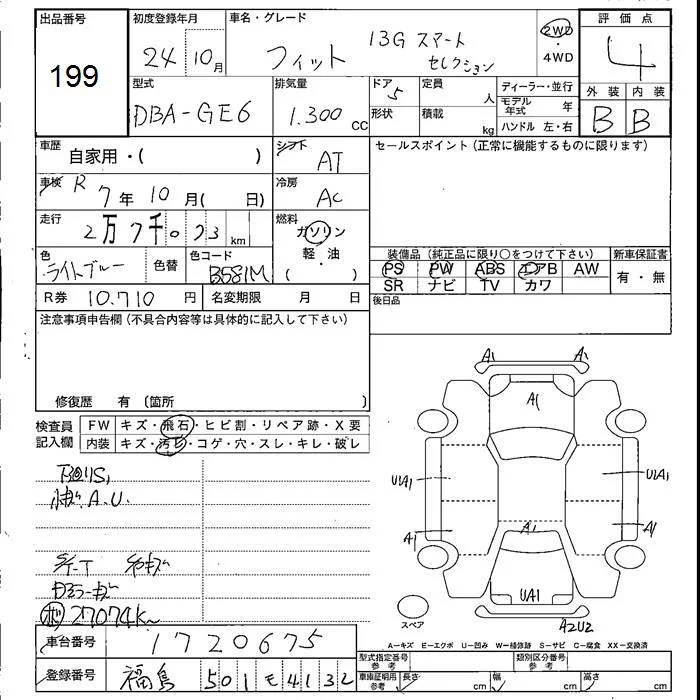 出品番号
199
初度登録年月
24 10月
車名・グレード
フィット 13G スマート
セレクション
2WD
・
4WD
評価点
4
型式
DBA-GE6
排気量
1.300 CC
ドア 5
形状
定員
人
積載
kg
ディーラー・並行
モデル年式 年
ハンドル 左・右
外装 内装
B B
車歴
自家用・( )
シフト
AT
セールスポイント(正常に機能するものに限ります)
車検 R 7年10月( 日)
冷房
AC
走行
2万7千073 km
燃料
ガソリン
・
軽・油
( )
色
ライトブルー
色替
色コード
B581M
装備品(純正品に限り○をつけて下さい)
新車保証書
PS PW ABS エアB AW
SR ナビ TV カワ
有・無
R券 10.710 円
名変期限 月 日
後日品
注意事項申告欄(不具合内容等は具体的に記入して下さい)
修復歴 有 (箇所 )
検査員
記入欄
FW キズ・飛石・ヒビ割・リペア跡・X要
内装 キズ・汚れ・コゲ・穴・スレ・キレ・破レ
小キズ A.U.
27074K~
A1 A1
A1
U1A1 U1A1
A1 A1 A1
UA1
A2U2
スペア
A=キズ E=エクボ U=凹み W=補修跡 S=サビ C=腐食 XX=交換済
車台番号
1720675
登録番号
福島 501 モ 4132
型式指定番号
参考
類別区分番号
参考
車庫証明用
参考
長さ cm
幅 cm
高さ cm